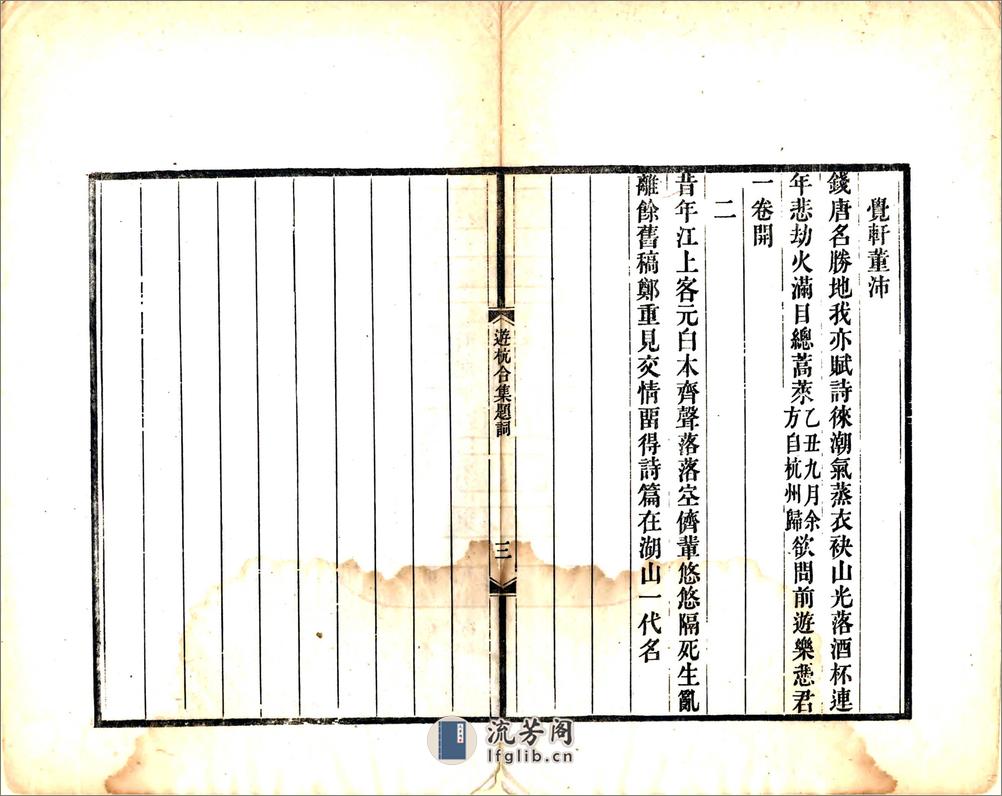 覺軒董沛
錢唐名勝地我亦賦詩徠潮氣蒸衣袂山光落酒杯連
年悲劫火滿目總蒿萊乙丑九月余方自杭州歸欲問前遊樂慿君
一卷開
二
昔年江上客元白本齊聲落落空儕輩悠悠隔死生亂
離餘舊稿鄭重見交情畱得詩篇在湖山一代名
遊杭合集題詞
三
流芳阁
lfglib.cn